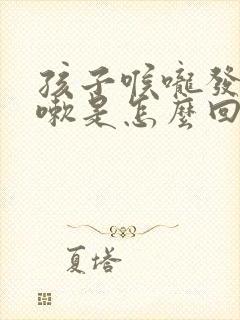 孩子喉嚨發
嗽是怎麼回
夏塔